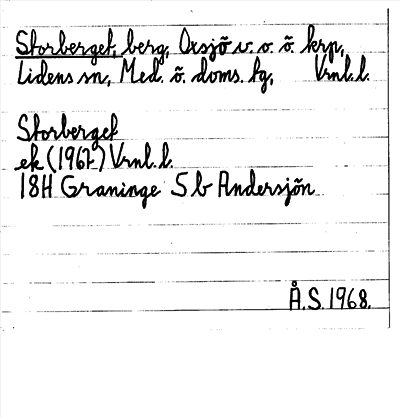 Storberget, berg, Oxsjö v. o. ö. krp,
Lidens sn, Med. ö. doms. tg, Vrnl.l.
Storberget
ek (1967) Vrnl.l.
18H Graninge 5 b Andersjön
Å.S. 1968.